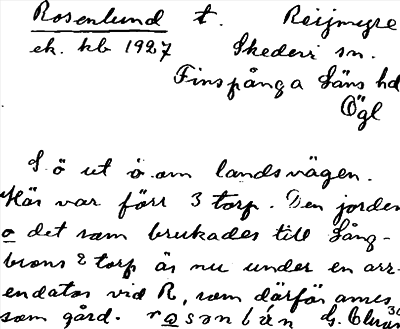 Rosenlund t. Reijmyre
ek. kb 1927 Skedevi sn.
Finspånga läns hd
Ögl
S ö ut ö. om landsvägen.
Här var förr 3 torp. Den jorden
o det som brukades till Lång-
brons 2 torp är nu under en arr-
endator vid R, som därför anses
som gård. G. 30